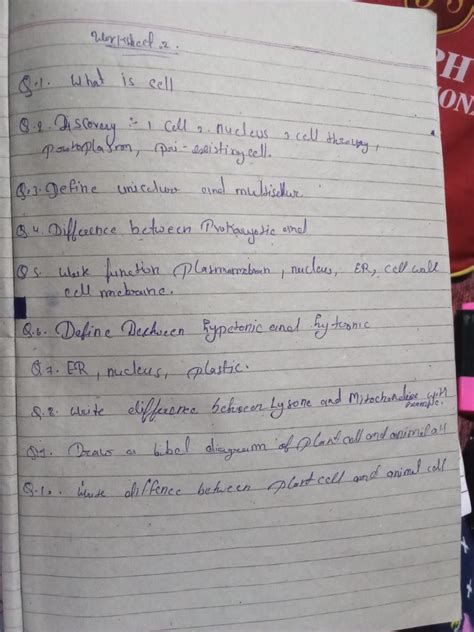 Worksheet. 2.
Q.1. What is cell
Q.2. Discovery :- 1 cell 2. nucleus 3 cell theory,
protoplasm, pri-existing cell.
Q.3. Define and
Q.4. Difference between Prokaryotic and
Q 5. function plasmamebran, nucleus, ER, cell wall
cell mebraine.
Q.6. Define hypetonic and
Q.7. ER, nucleus, plastic.
Q.8. Write difference between Lysone and with
example.
Q.9. Draw a label diagram of plant cell and animal cell
Q.10. between plant cell and animal cell
PH
ION